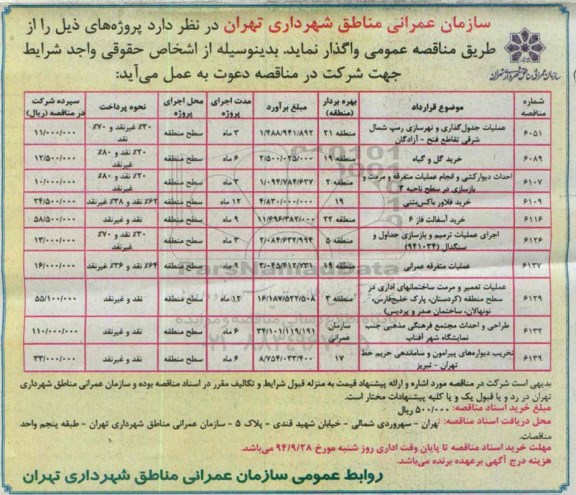 سازمان عمرانی مناطق شهرداری تهران در نظر دارد پروژه‌های ذیل را از
طریق مناقصه عمومی واگذار نماید. بدینوسیله از اشخاص حقوقی واجد شرایط
جهت شرکت در مناقصه دعوت به عمل می‌آید:
سازمان عمرانی مناطق شهرداری تهران
شماره مناقصه موضوع قرارداد بهره بردار مبلغ برآورد مدت اجرای پروژه محل اجرای پروژه نحوه پرداخت سپرده شرکت در مناقصه (ریال)
۶۰۵۱ عملیات جدول‌گذاری و نهرسازی رمپ شمال شرقی تقاطع فتح - آزادگان منطقه ۲۱ ۱/۴۸۸/۹۴۱/۸۹۲ ۳ ماه سطح منطقه ۳۰٪ غیرنقد و ۷۰٪ نقد ۱۱/۰۰۰/۰۰۰
۶۰۸۹ خرید گل و گیاه منطقه ۱۹ ۲/۵۰۰/۰۲۵/۰۰۰ ۶ ماه سطح منطقه ۲۰٪ نقد و ۸۰٪ غیرنقد ۱۲/۵۰۰/۰۰۰
۶۱۰۷ احداث دیوارکشی و انجام عملیات متفرقه و مرمت و بازسازی در سطح ناحیه ۳ منطقه ۲ ۱/۰۹۴/۷۸۴/۶۲۷ ۳ ماه سطح منطقه ۲۰٪ نقد و ۸۰٪ غیرنقد ۱۰/۰۰۰/۰۰۰
۶۱۰۹ خرید فلاور باکس‌بتنی ۱۹ ۴/۸۳۰/۰۰۰/۰۰۰ ۱۲ ماه سطح منطقه ۶۲٪ نقد و ۳۸٪ غیرنقد ۲۴/۵۰۰/۰۰۰
۶۱۱۶ خرید آسفالت فاز ۶ منطقه ۲۲ ۱۱/۶۹۶/۳۸۲/۰۰۰ ۹ ماه سطح منطقه نقد و غیرنقد ۵۸/۵۰۰/۰۰۰
۶۱۲۶ اجرای عملیات ترمیم و بازسازی جداول و سنگفال (۹۴۱۰۳۴) منطقه ۵ ۲/۰۸۴/۶۳۲/۹۹۴ ۳ ماه سطح منطقه ۳۰٪ نقد و ۷۰٪ غیرنقد ۱۳/۰۰۰/۰۰۰
۶۱۲۷ عملیات متفرقه عمرانی منطقه ۱۹ ۳/۰۴۵/۴۱۲/۷۳۱ ۹ ماه سطح منطقه ۶۴٪ نقد و ۳۶٪ غیرنقد ۱۶/۰۰۰/۰۰۰
۶۱۲۹ عملیات تعمیر و مرمت ساختمانهای اداری در سطح منطقه (کردستان، پارک خلیج‌فارس، نونهالان، ساختمان صدر و پردیس) منطقه ۳ ۱۶/۱۸۷/۵۲۲/۵۰۸ ۱۲ ماه سطح منطقه نقد و غیرنقد ۵۵/۱۰۰/۰۰۰
۶۱۳۲ طراحی و احداث مجتمع فرهنگی مذهبی جنب نمایشگاه شهر آفتاب سازمان عمرانی ۳۴/۱۰۱/۱۱۹/۱۹۱ ۶ ماه سطح منطقه نقد و غیرنقد ۱۱۰/۰۰۰/۰۰۰
۶۱۳۹ تخریب دیواره‌های پیرامون و ساماندهی حریم خط تهران - تبریز ۱۷ ۸/۷۵۴/۰۳۲/۴۰۰ ۶ ماه سطح منطقه نقد و غیرنقد ۳۳/۰۰۰/۰۰۰
بدیهی است شرکت در مناقصه مورد اشاره و ارائه پیشنهاد قیمت به منزله قبول شرایط و تکالیف مقرر در اسناد مناقصه بوده و سازمان عمرانی مناطق شهرداری
تهران در رد و یا قبول یک و یا کلیه پیشنهادات مختار است.
مبلغ خرید اسناد مناقصه: ۵۰۰/۰۰۰ ریال
محل دریافت اسناد مناقصه: تهران - سهروردی شمالی - خیابان شهید قندی - پلاک ۵ - سازمان عمرانی مناطق شهرداری تهران - طبقه پنجم واحد
مناقصات.
مهلت خرید اسناد مناقصه تا پایان وقت اداری روز شنبه مورخ ۹۴/۹/۲۸ می‌باشد.
هزینه درج آگهی برعهده برنده می‌باشد.
روابط عمومی سازمان عمرانی مناطق شهرداری تهران